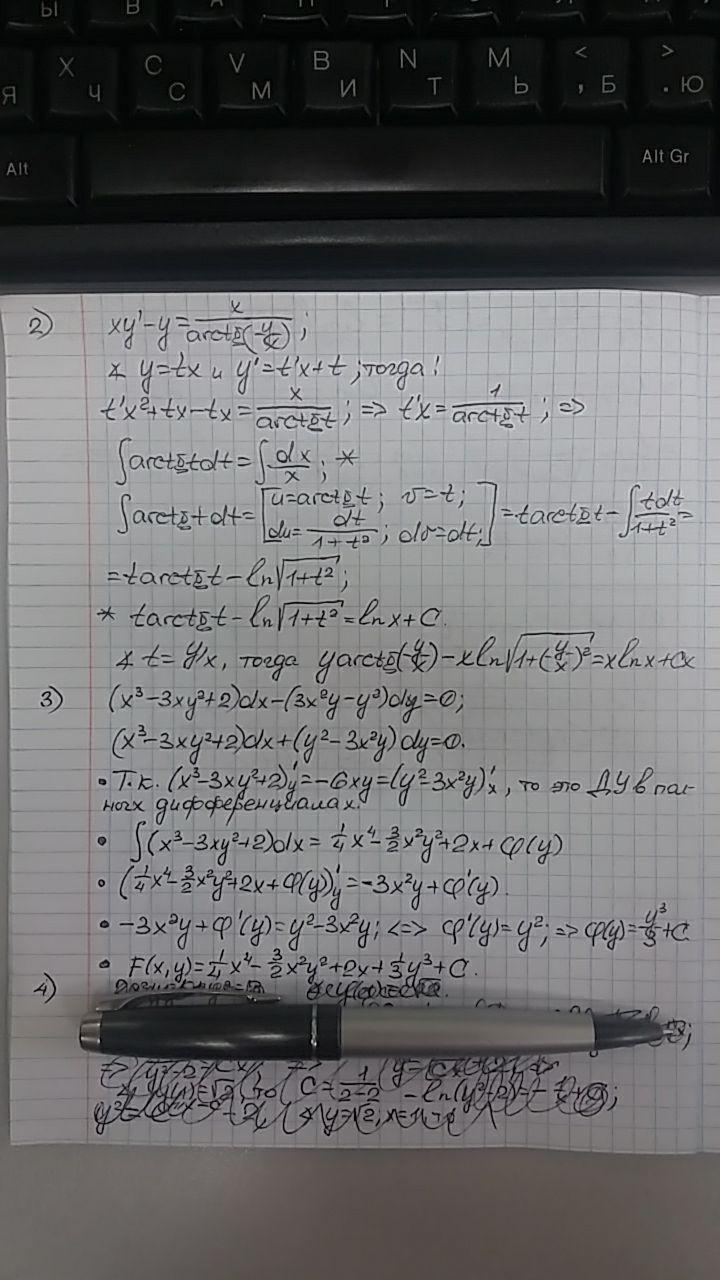 Ы В
Я X Ч C С V М B И N Т M Ь < , Б > . Ю
Alt Alt Gr
2) xy'-y=x/arctg(y/x);
∡ y=tx и y'=t'x+t; тогда:
t'x²+tx-tx=x/arctgt; => t'x=1/arctgt; =>
∫arctgtdt=∫dx/x; *
∫arctgtdt=[u=arctgt; v=t; du=dt/1+t²; dv=dt;]=tarctgt-∫tdt/1+t²=
=tarctgt-ln√1+t²;
* tarctgt-ln√1+t²=lnx+C.
∡ t=y/x, тогда yarctg(y/x)-xln√1+(y/x)²=xlnx+Cx
3) (x³-3xy²+2)dx-(3x²y-y²)dy=0;
(x³-3xy²+2)dx+(y²-3x²y)dy=0.
• Т.к. (x³-3xy²+2)'y=-6xy=(y²-3x²y)'x, то это ДУ в пол-
ных дифференциалах.
• ∫(x³-3xy²+2)dx=1/4x⁴-3/2x²y²+2x+φ(y)
• (1/4x⁴-3/2x²y²+2x+φ(y))'y=-3x²y+φ'(y).
• -3x²y+φ'(y)=y²-3x²y; <=> φ'(y)=y²; => φ(y)=y³/3+C
• F(x,y)=1/4x⁴-3/2x²y²+2x+1/3y³+C.
4)